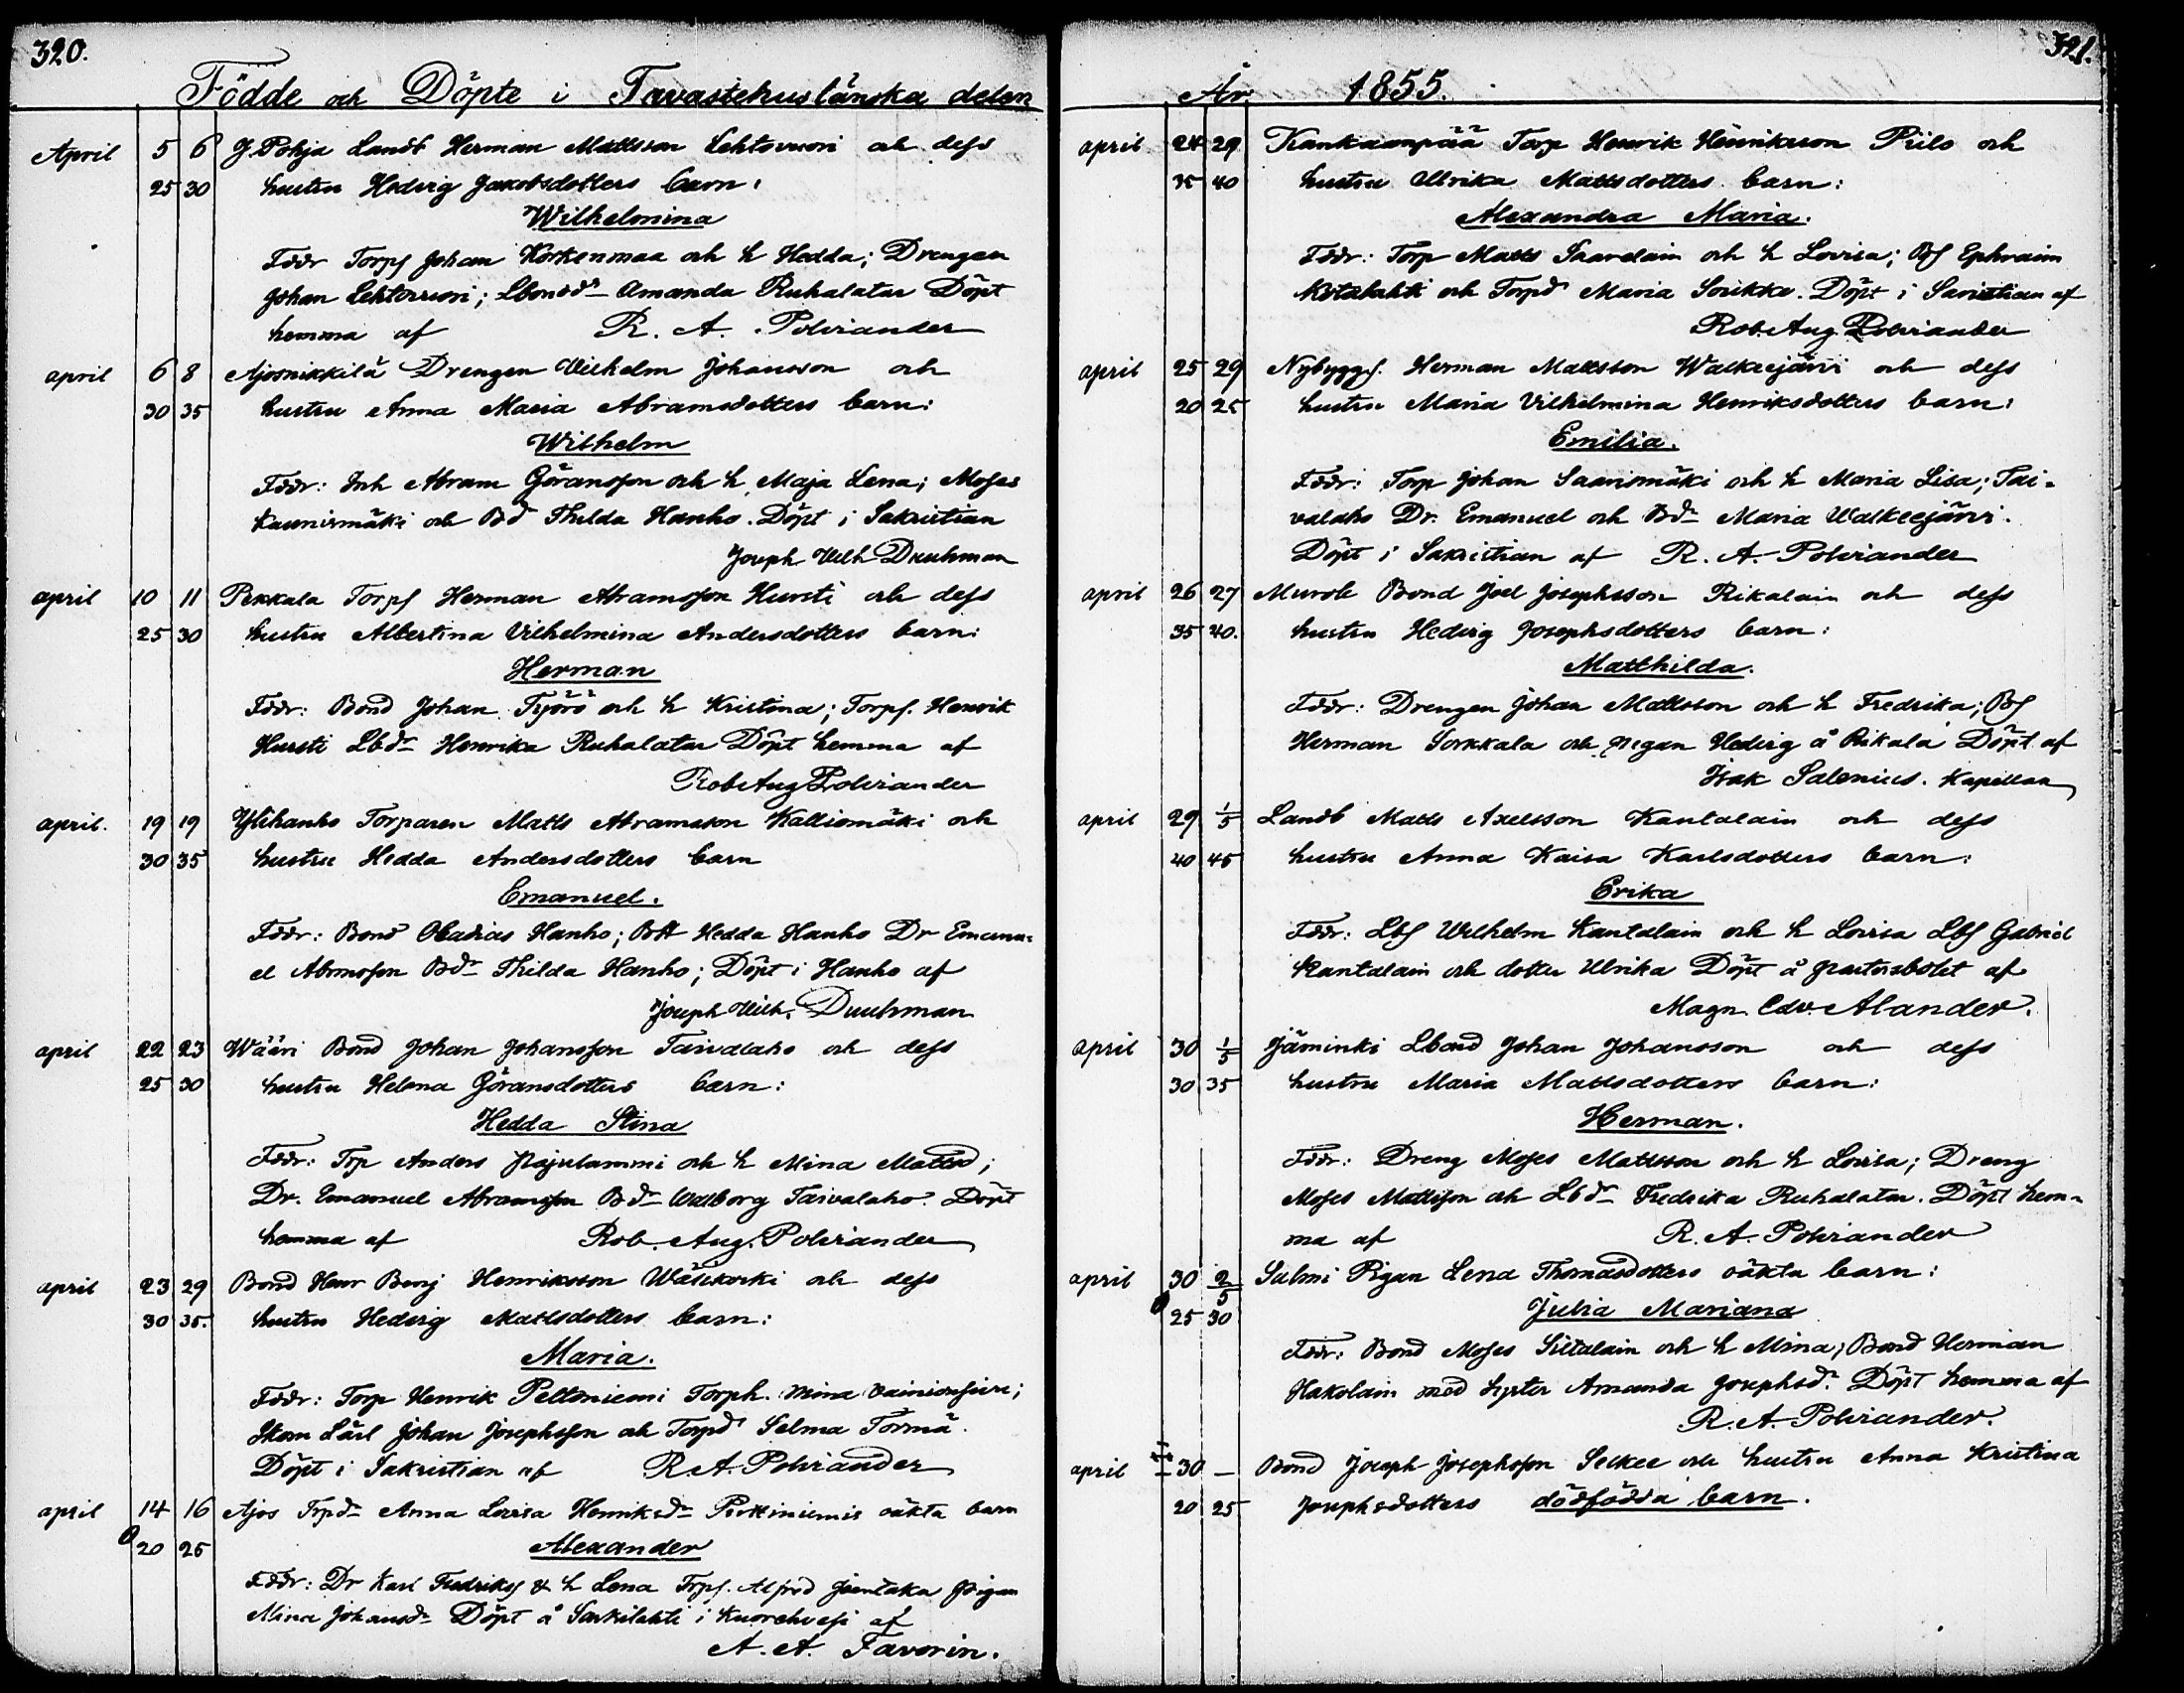 320.
Födde och Döpte i Tavastehuslänska delen
April 5 6 Y. Pohja Landb Herman Mattsson Lehtovuori och dess
25 30 hustru Hedvig Jakobsdotters barn:
Wilhelmina
Fddr Torps Johan Korkenmaa och h Hedda; Drengen
Johan Lehtovuori; Lbondr Amanda Ruhalatar Döpt
hemma af R. A. Polviander
april 6 8 Ajosnikkilä Drengen Vilhelm Johansson och
30 35 hustru Anna Maria Abramsdotters barn:
Wilhelm
Fddr: Inh Abram Göransson och h Maja Lena; Moses
Kaunismäki och Bd Thilda Hanho. Döpt i Sakristian
Joseph Wilh Duuhman
april 10 11 Pekkala Torps Herman Abramsson Hursti och dess
25 30 hustru Albertina Vilhelmina Andersdotters barn:
Herman
Fddr: Bond Johan Työrö och h Kristina; Torps. Henrik
Hursti Lbdr Henrika Ruhalatar Döpt hemma af
Rob Aug Polviander
april. 19 19 Ylihanho Torparen Matts Abramsson Kalliomäki och
30 35 hustru Hedda Andersdotters barn
Emanuel.
Fddr: Bond Obadias Hanho; Hedda Hanho Dr Emanu-
el Abmsson Bdr Thilda Hanho; Döpt i Hanho af
Joseph Wilh. Duuhman
april 22 23 Wääri Bond Johan Johansson Taivalaho och dess
25 30 hustru Helena Göransdotters barn:
Hedda Stina
Fddr: Trp Anders Pajulammi och h Mina Mattsd;
Dr. Emanuel Abramsson Bdr Walborg Taivalaho. Döpt
hemma af Rob. Aug. Polviander
april 23 29 Bond Benj Henriksson och dess
30 35. hustru Hedvig Mattsdotters barn:
Maria.
Fddr: Torp Henrik Peltoniemi Torph. Mina
Skom Lärl Johan Josephsson och Torpd Selma Tormä.
Döpt i Sakristian af R A. Polviander
april 14 16 Ajos Trpdr Anna Lovisa Henriksdr oäkta barn
0 20 25 Alexander
Fddr: Dr Karl Fredrikss & h Lena Trps. Alfred Pigan
Mina Johansdr Döpt å Sarkilahti i Kuorehvesi af
A. A. Favorin.
321.
År 1855.
april 24 29 Kankaanpää Torp Henrik Henriksson Piilo och
35 40 hustru Ulrika Mattsdotters barn:
Alexandra Maria.
Fddr: Torp Matts Saavelain och h Lovisa; Bs Ephraim
Kotalahti och Torpd Maria Soukko. Döpt i af
Rob. Aug. Polviander
april 25 29 Nybyggs. Herman Mattsson Walkeejärvi och dess
20 25 hustru Maria Vilhelmina Henriksdotters barn:
Emilia.
Fddr: Torp Johan Saarismäki och h Maria Lisa; Tai-
valaho Dr. Emanuel och Bdr Maria Walkeejärvi.
Döpt i Sakristian af R. A. Polviander
april 26 27 Murole Bond Joel Josephsson Rikalain och dess
35 40. hustru Hedvig Josephsdotters barn:
Matthilda.
Fddr: Drengen Johan Mattsson och h Fredrika; Bs
Herman Sorkkala och Pigan Hedvig å Rikala Döpt af
Isak Salenius. Kapellan
april 29 1/5 Landb Matts Axelsson Kantalain och dess
40 45 hustru Anna Kaisa Karlsdotters barn:
Erika
Fddr: Lbs Wilhelm Kantalain och h Lovisa Lbs Gabriel
Kantalain och dotter Ulrika Döpt å Pastorsbolet af
Magn. Edv. Alander.
april 30 1/5 Jäminki Lbond Johan Johansson och dess
30 35 hustru Maria Mattsdotters barn:
Herman.
Fddr: Dreng Moses Mattsson och h Lovisa; Dreng
Moses Mattsson och Lbdr Fredrika Ruhalatar. Döpt hem-
ma af R. A. Polviander
april 30 2/5 Salmi Pigan Lena Thomasdotters oäkta barn:
0 25 30 Julia Mariana
Fddr: Bond Moses Siltalain och h Mina; Bond Herman
Hakolain med syster Amanda Josephsdr. Döpt hemma af
R. A. Polviander.
april 30 — Bond Joseph Josephsson Selkee och hustru Anna Kristina
20 25 Josephsdotters dödfödda barn.